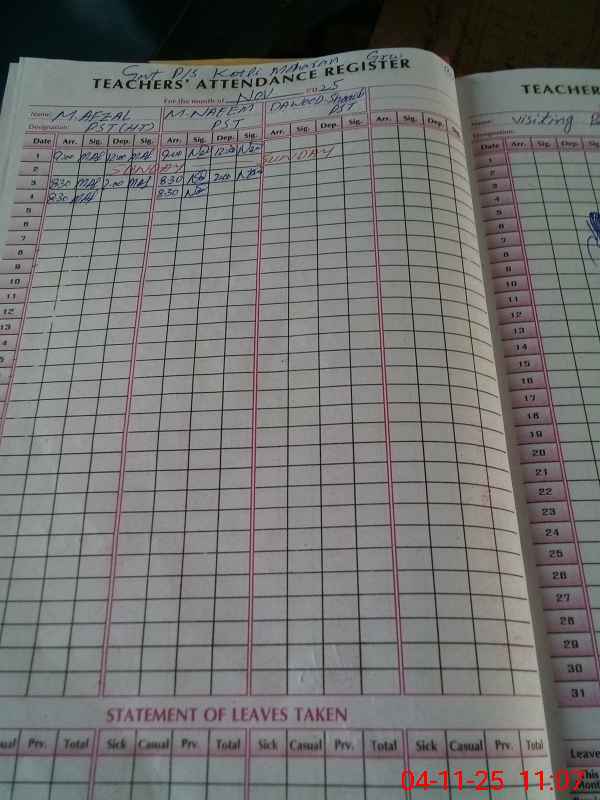 Govt P/S Kotli Maharan Grw
TEACHERS' ATTENDANCE REGISTER
For the month of Nov 2025
Name: M. AFZAL M. NAEEM DAWOOD Shoaib
Designation: PST(HT) PST PST
Date Arr. Sig. Dep. Sig. Arr. Sig. Dep. Sig. Arr. Sig. Dep. Sig. Arr. Sig. Dep. Sig.
1 9:00 MAf 12:00 MAf 9:00 12:00
2 SUNDAY SUNDAY
3 8:30 MAf 2:00 MAf 8:30 2:00
4 8:30 MAf 8:30
5
6
7
8
9
10
11
12
13
STATEMENT OF LEAVES TAKEN
Prv. Total Sick Casual Prv. Total Sick Casual Prv. Total Sick Casual Prv. Total
TEACHER
Name: visiting
Designation:
Date Arr. Sig. Dep. Sig.
1
2
3
4
5
6
7
8
9
10
11
12
13
14
15
16
17
18
19
20
21
22
23
24
25
26
27
28
29
30
31
Leave
This
Month
04-11-25 11:07